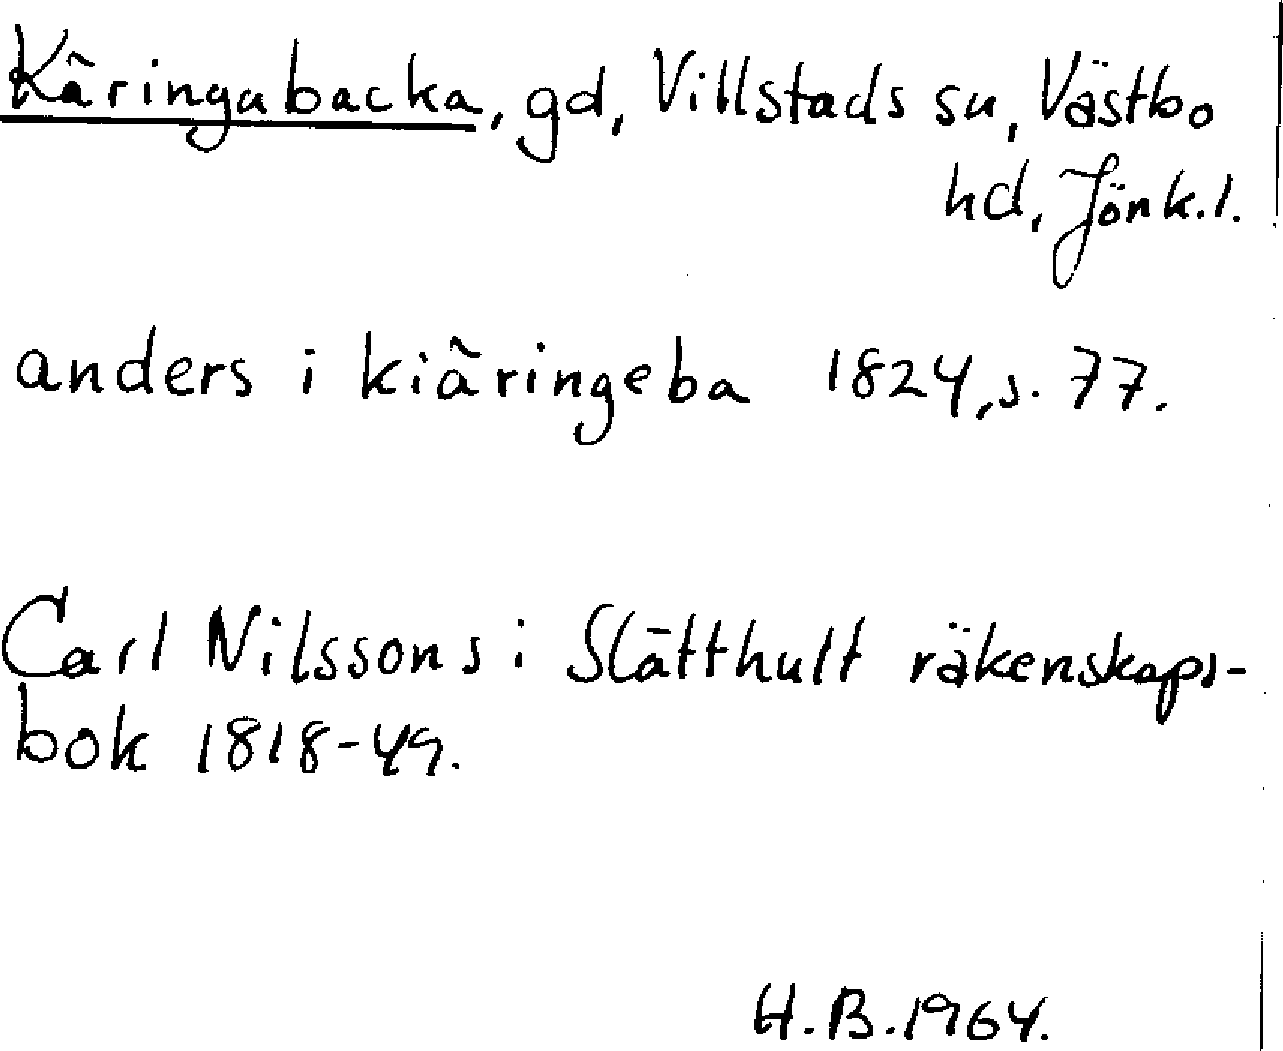 Käringabacka, gd, Villstads sn, Västbo
hd, Jönk.l.
anders i kiäringeba 1824, s. 77.
Carl Nilssons i Slätthult räkenskaps-
bok 1818-49.
H.B. 1964.